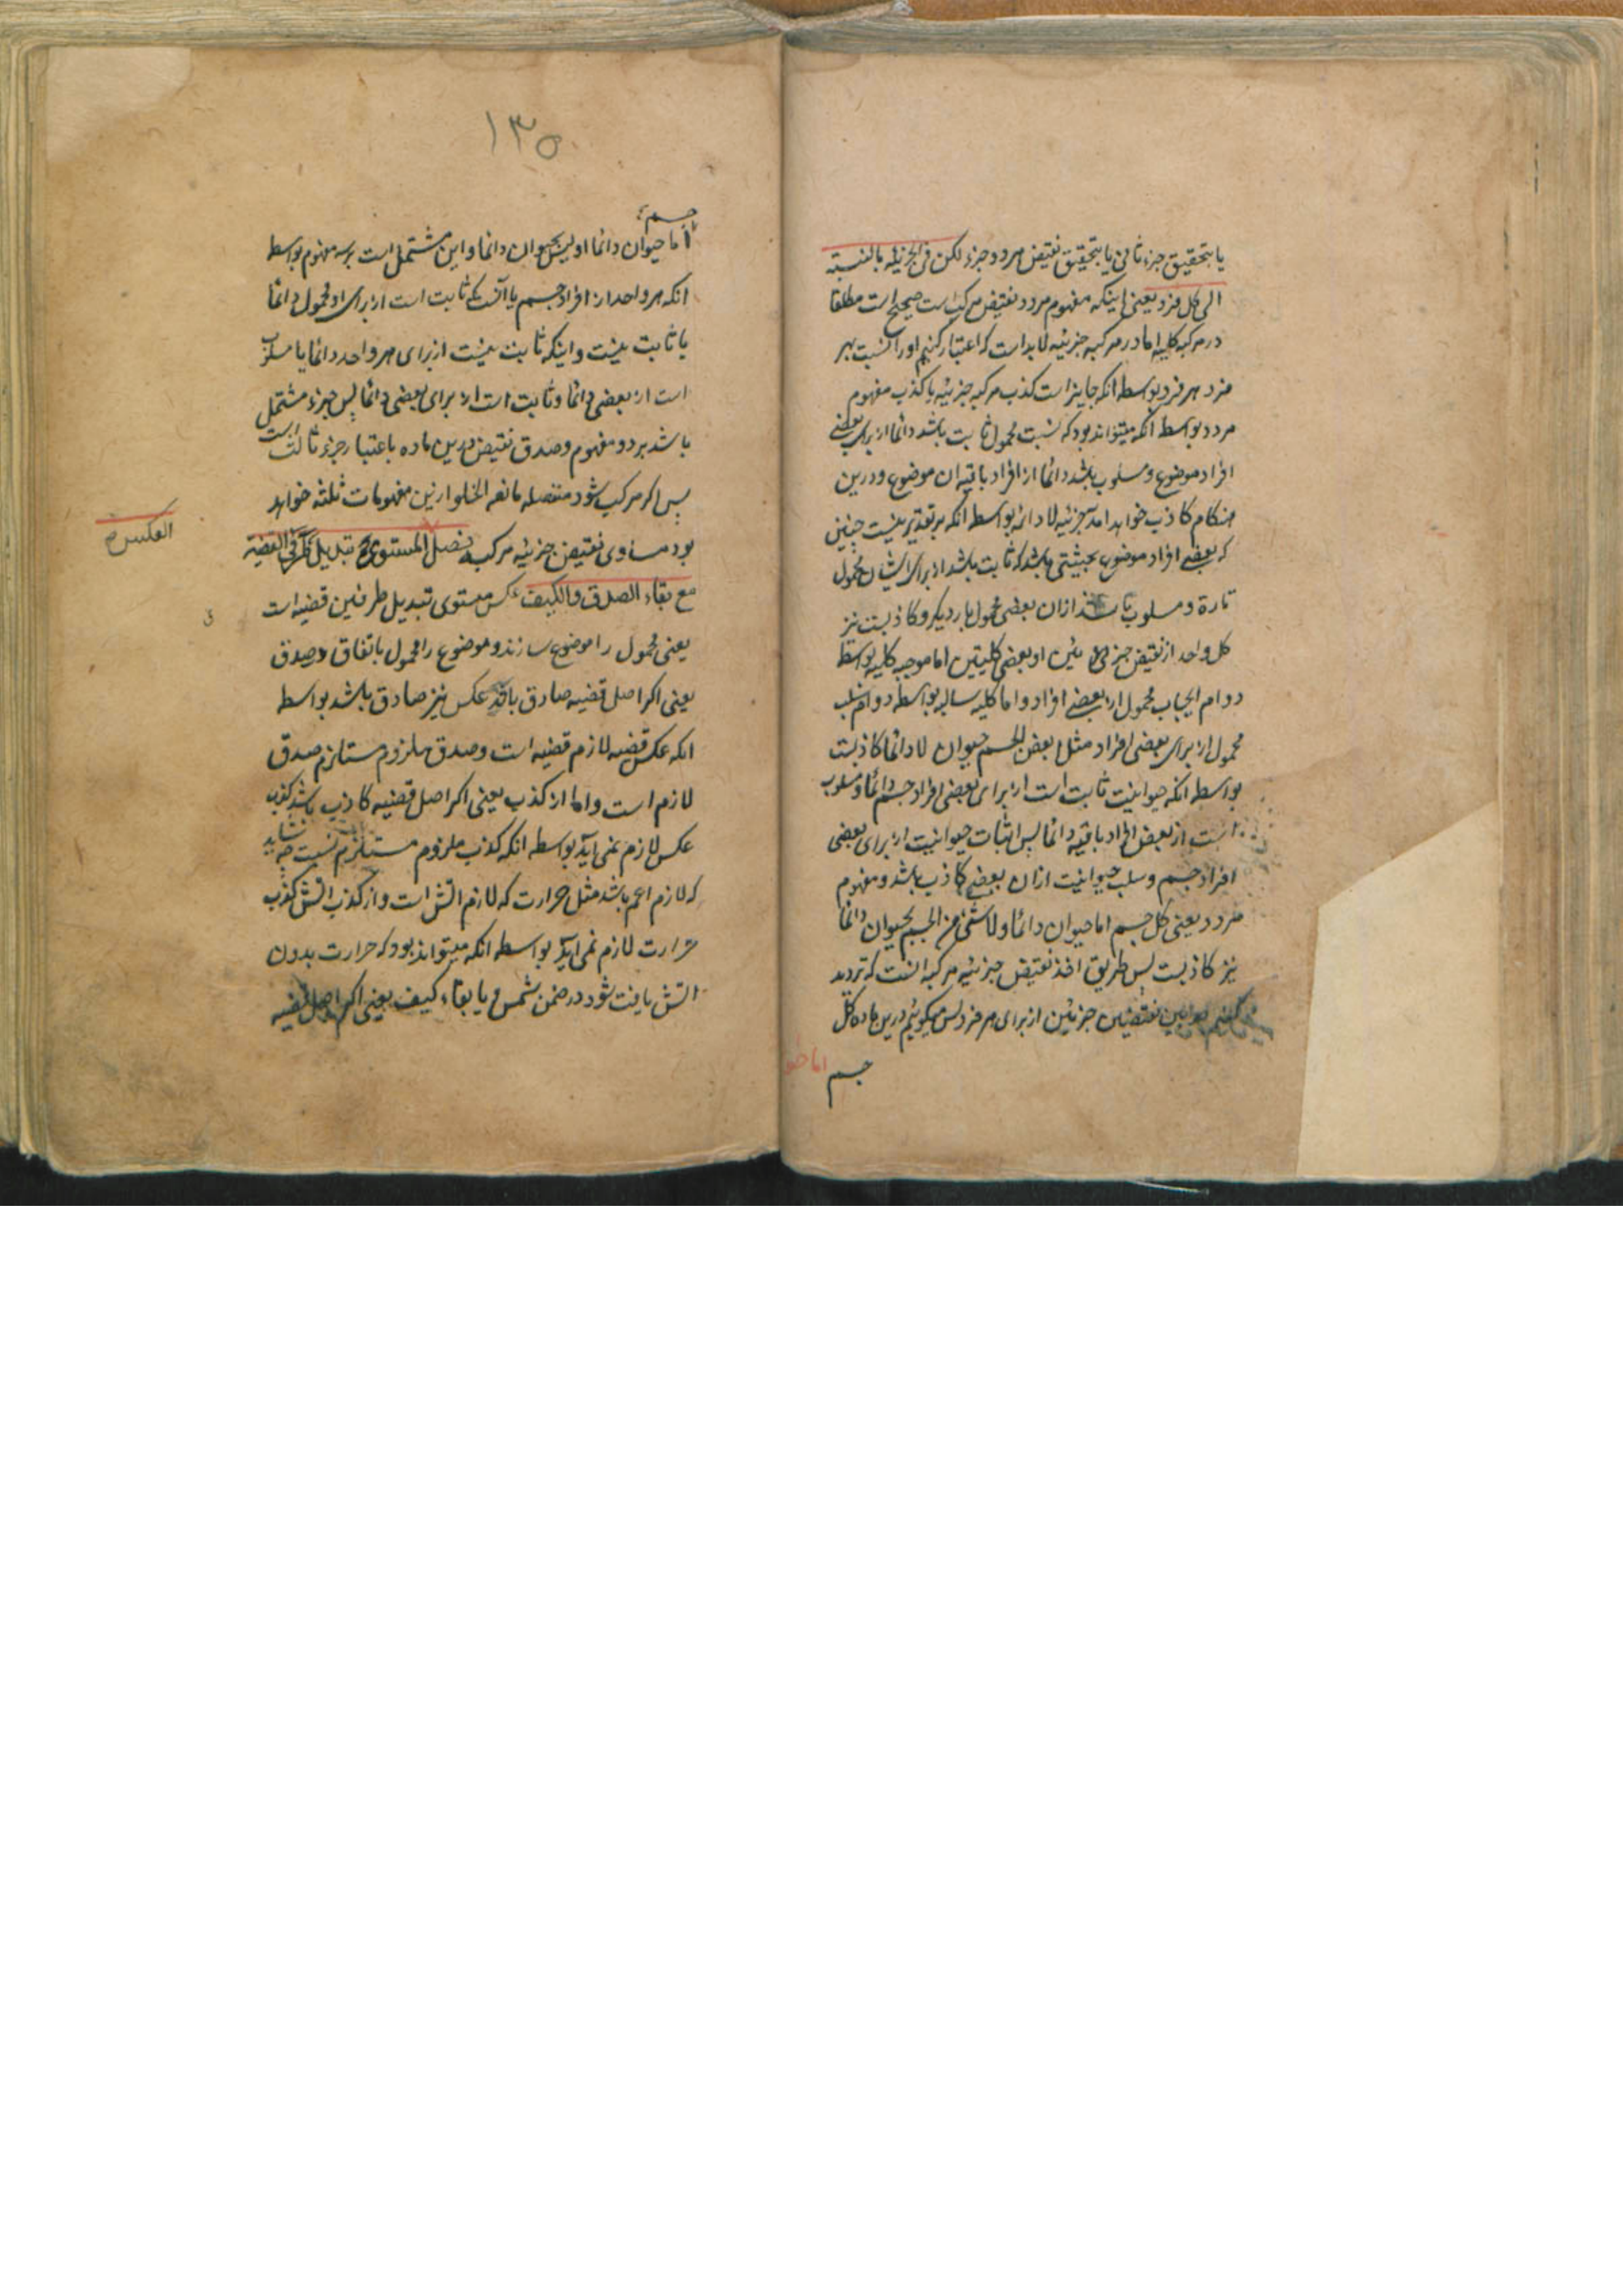 یا بتحقیق جزء ثانی یا بتحقیق نقیض هر دو جزء لکن فی الجزئیه بالنسبة
الی کل فرد یعنی اینکه مفهوم مردد نقیض مرکب است صحیح است مطلقا
در مرکبه کلیه اما در مرکبه جزئیه لابد است که اعتبار کنیم او را نسبت بهر
فرد هر فرد بواسطه انکه جایز است کذب مرکبه جزئیه با کذب مفهوم
مردد بواسطه انکه میتواند بود که نسبت محمول ثابت باشد دائما از برای بعضی
افراد موضوع و مسلوب باشد دائما از افراد باقیه ان موضوع و درین
هنکام کاذب خواهد امد جزئیه لا دائمه بواسطه انکه بر تقدیر نیست چنین
که بعضی افراد موضوع بحیثیتی باشد که ثابت باشد از برای ایشان محمول
تارة و مسلوب باشد از ان بعضی محمول بار دیکر و کاذبست نیز
کل واحد از نقیض جزئین او بعضی کلیتین اما موجبه کلیه بواسطه
دوام ایجاب محمول از بعضی افراد و اما کلیه سالبه بواسطه دوام سلب
محمول از برای بعضی افراد مثل بعض الجسم حیوان لا دائما کاذبست
بواسطه انکه حیوانیت ثابت است از برای بعضی افراد جسم دائما و مسلوب
است از بعض افراد باقیه دائما پس اثبات حیوانیت از برای بعضی
افراد جسم و سلب حیوانیت از ان بعضی کاذب باشد و مفهوم
مردد یعنی کل جسم اما حیوان دائما و لا شئ من الجسم بحیوان دائما
نیز کاذبست پس طریق اخذ نقیض جزئیه مرکبه انست که تردید
کنیم میان نقیضین جزئین از برای هر فرد پس میکوئیم درین ماده کل
جسم
اما حیو
۱۳۵
جسم
اما حیوان دائما او لیس بحیوان دائما و این مشتمل است بر سه مفهوم بواسطه
انکه هر واحد از افراد جسم یا انست که ثابت است از برای او محمول دائما
یا ثابت نیست و اینکه ثابت نیست از برای هر واحد دائما یا مسلوب
است از بعضی دائما و ثابت است از برای بعضی دائما پس جزء مشتمل
باشد بر دو مفهوم و صدق نقیض درین ماده باعتبار جزء ثالث است
پس اکر مرکب شود منفصله مانعه الخلو ازین مفهومات ثلثه خواهد
بود مساوی نقیض جزئیه مرکبه فصل المستوی تبدیل طرفی القضیة
العکس
مع بقاء الصدق والکیف عکس مستوی تبدیل طرفین قضیه است
یعنی محمول را موضوع سازند و موضوع را محمول باتفاق صدق
یعنی اکر اصل قضیه صادق باشد عکس نیز صادق باشد بواسطه
انکه عکس قضیه لازم قضیه است و صدق ملزوم مستلزم صدق
لازم است و اما از کذب یعنی اکر اصل قضیه کاذب باشد کذب
عکس لازم نمی اید بواسطه انکه کذب ملزوم مستلزم نیست چه شاید
که لازم اعم باشد مثل حرارت که لازم اتش است و از کذب اتش کذب
حرارت لازم نمی اید بواسطه انکه میتواند بود که حرارت بدون
اتش یافت شود در ضمن شمس و یا بقاء کیف یعنی اکر اصل قضیه